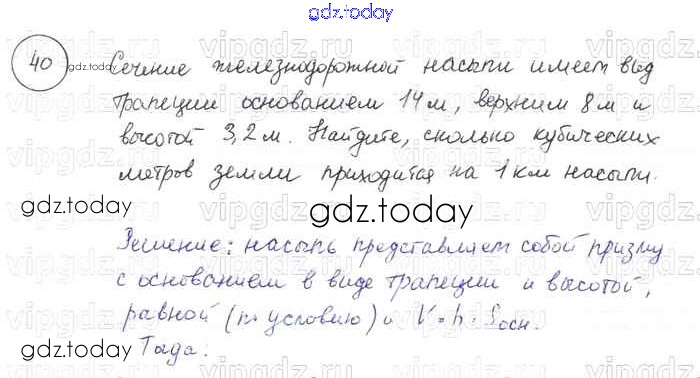 gdz.today
40
gdz.today
Сечение железнодорожной насыпи имеет вид
трапеции основанием 14 м, верхним 8 м и
высотой 3,2 м. Найдите, сколько кубических
метров земли приходится на 1 км насыпи.
gdz.today
gdz.today
Решение: насыпь представляет собой призму
с основанием в виде трапеции и высотой,
равной (по условию) и V = h · Sосн.
gdz.today
Тогда:
gdz.today